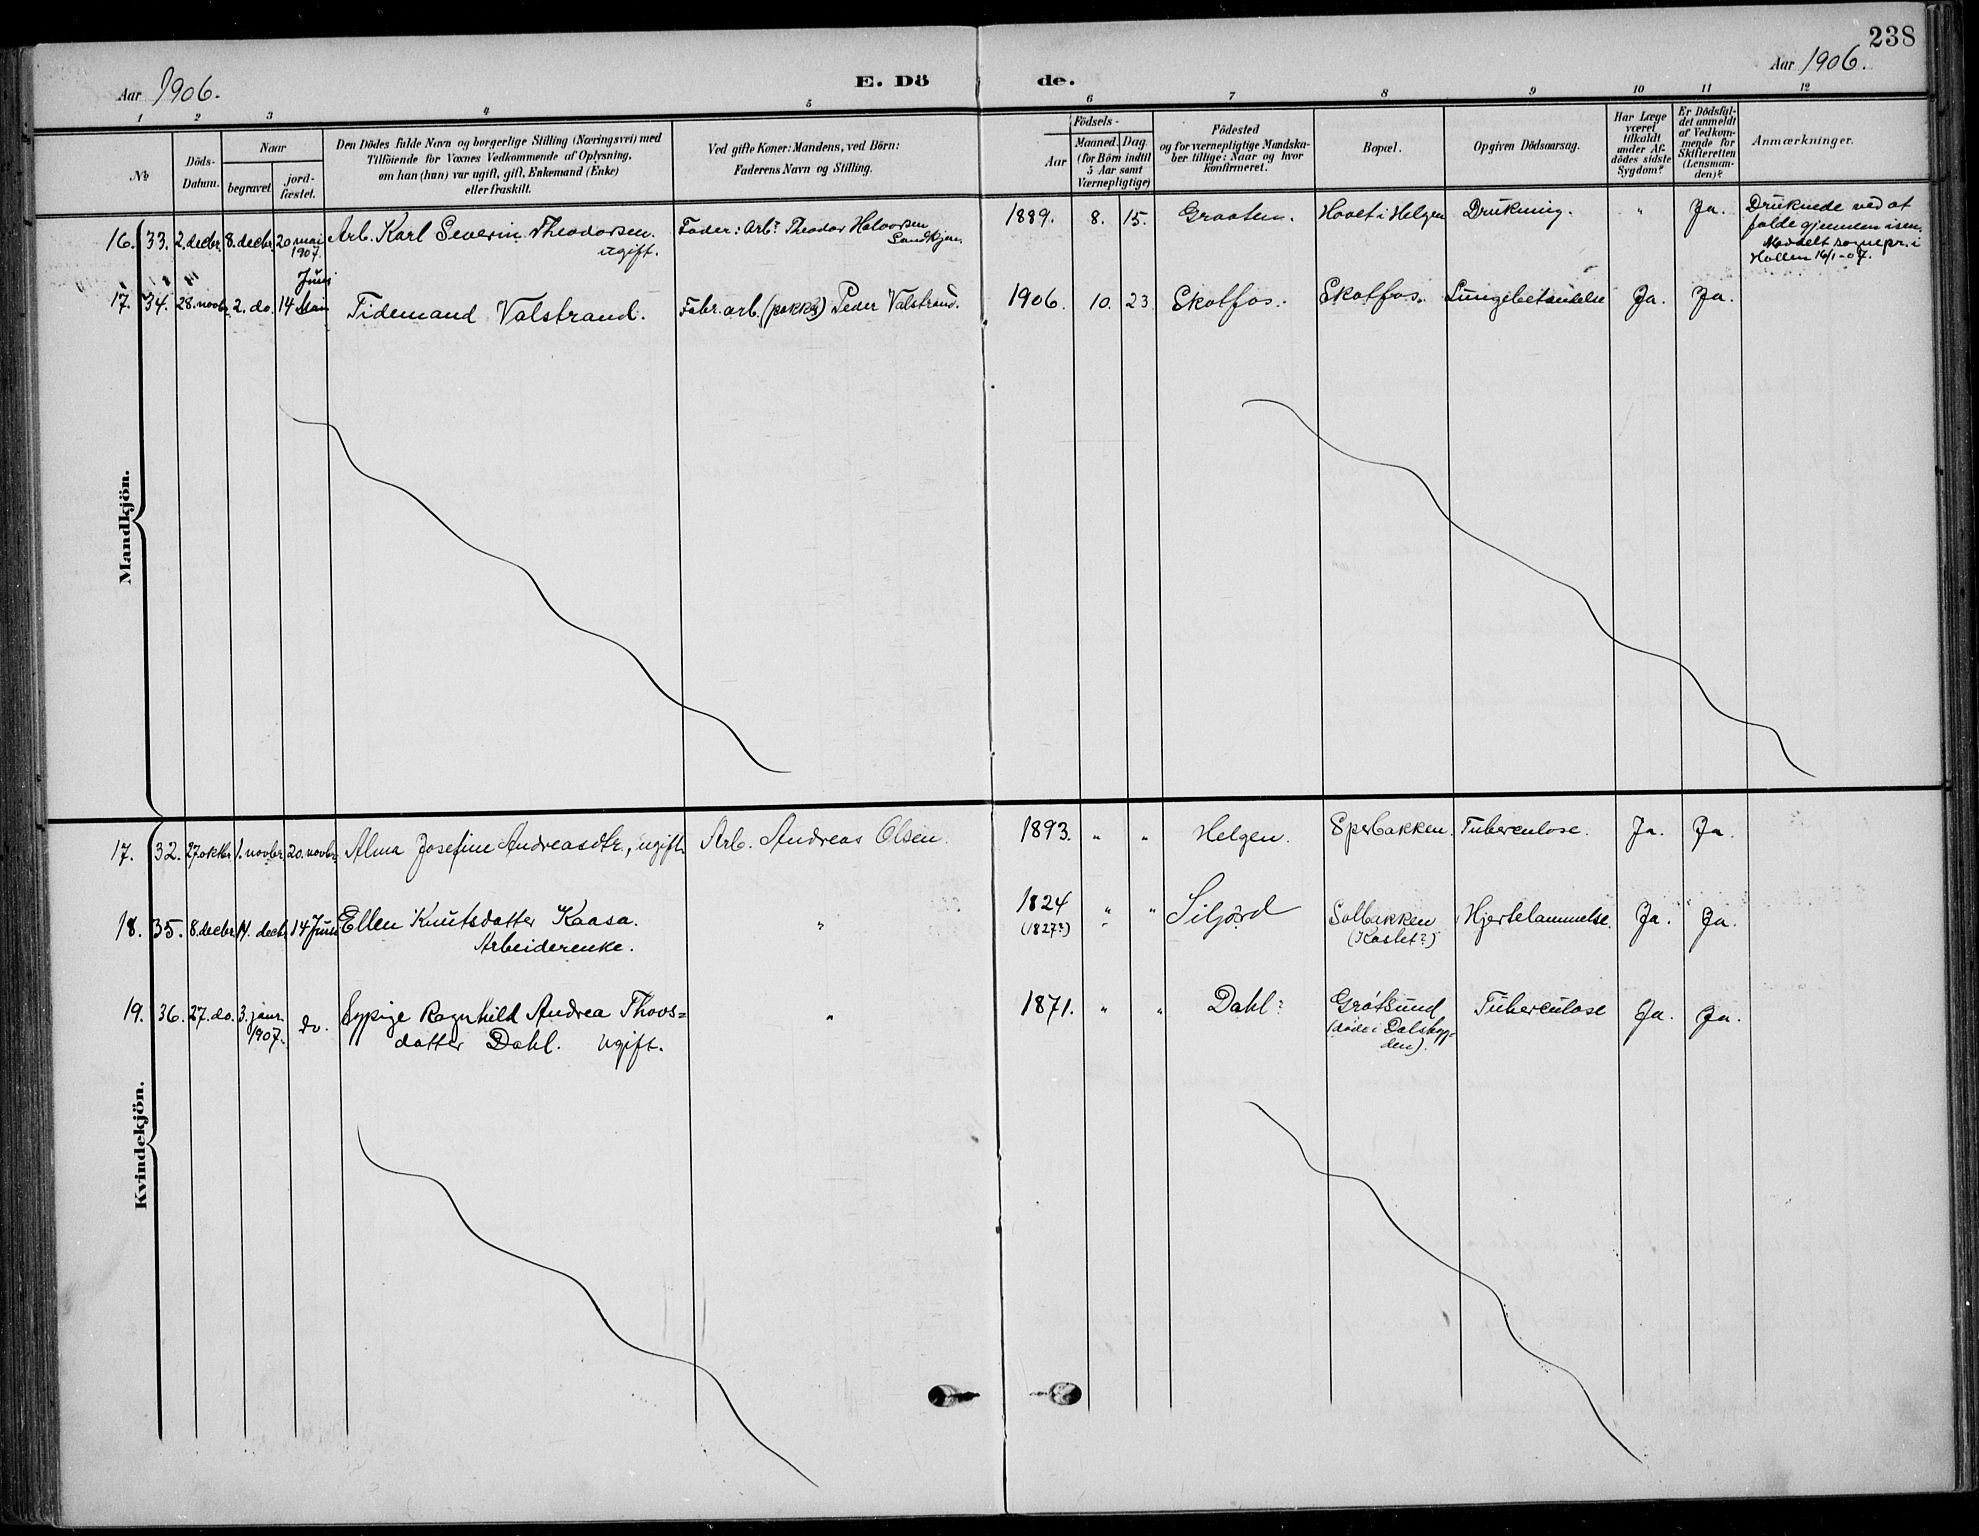 238
Aar 1906. E. Dö de. Aar 1906.
1 2 3 4 5 6 7 8 9 10 11 12
No
Döds-Datum.
Naar
begravet
jord-fæstet.
Den Dödes fulde Navn og borgerlige Stilling (Næringsvei) med
Tilföiende for Voxnes Vedkommende af Oplysning,
om han (hun) var ugift, gift, Enkemand (Enke)
eller fraskilt.
Ved gifte Koner: Mandens, ved Börn:
Faderens Navn og Stilling.
Födsels-
Aar
Maaned. Dag.
(for Börn indtil
5 Aar samt
Værnepligtige)
Födested
og for værnepligtige Mandska-
ber tillige: Naar og hvor
konfirmeret.
Bopæl.
Opgiven Dödsaarsag.
Har Læge
været
tilkaldt
under Af-
dödes sidste
Sygdom?
Er Dödsfal-
det anmeldt
af Vedkom-
mende for
Skifteretten
(Lensman-
den)?
Anmærkninger.
Mandkjön.
16. 33. 2. decbr. 8. decbr. 20 mai 1907. Arb. Karl Severin Theodorsen. ugift. Fader: Arbr Theodor Halvorsen Sandkjær. 1889. 8. 15. Graaten. Hovet i Helgen Drukning. " Ja. Druknede ved at
falde gjennem isen.
Meddelt sognepr. i
Hollen 16/1-07.
17. 34. 28. novbr. 2. do. 14 Mai Juni Tidemand Valstrand. Fabr. arb. (pakker) Peder Valstrand. 1906. 10. 23 Skotfos. Skotfos. Lungebetændelse Ja. Ja.
Kvindekjön.
17. 32. 27. oktbr. 1. novbr. 20. novbr. Alma Josefine Andreasdtr., ugift. Arb. Andreas Olsen. 1893. " " Helgen. Eperbakken. Tuberculose. Ja. Ja.
18. 35. 8. decbr. 14. decbr. 14 Juni Ellen Knutsdatter Kaasa.
Arbeiderenke. " 1824
(1827?) " " Siljørd Solbakken
(Kaslet?) Hjertelammelse. Ja. Ja.
19. 36. 27. do. 3. janr. 1907. do. Sypige Ragnhild Andrea Thovs=
datter Dahl. ugift. " 1871. " " Dahl? Grøtsund
(døde i Dalsbyg-
den). Tuberculose Ja. Ja.